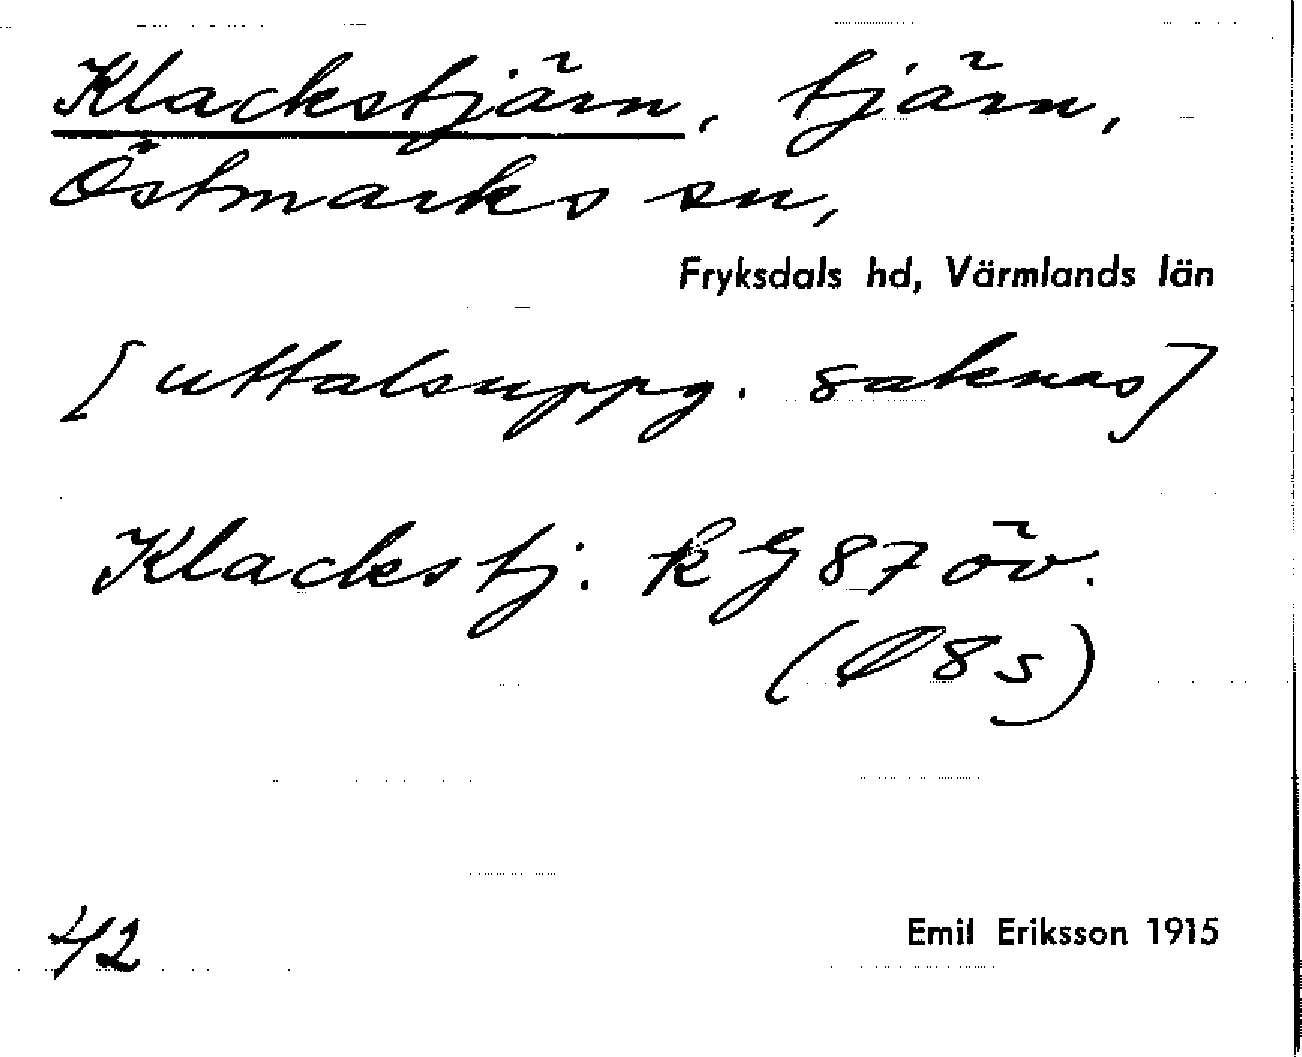 Klackstjärn, tjärn,
Östmarks sn,
Fryksdals hd, Värmlands län
[uttalsuppg. saknas]
Klackstj. k G 87 öv.
(Ø 8 s)
42
Emil Eriksson 1915